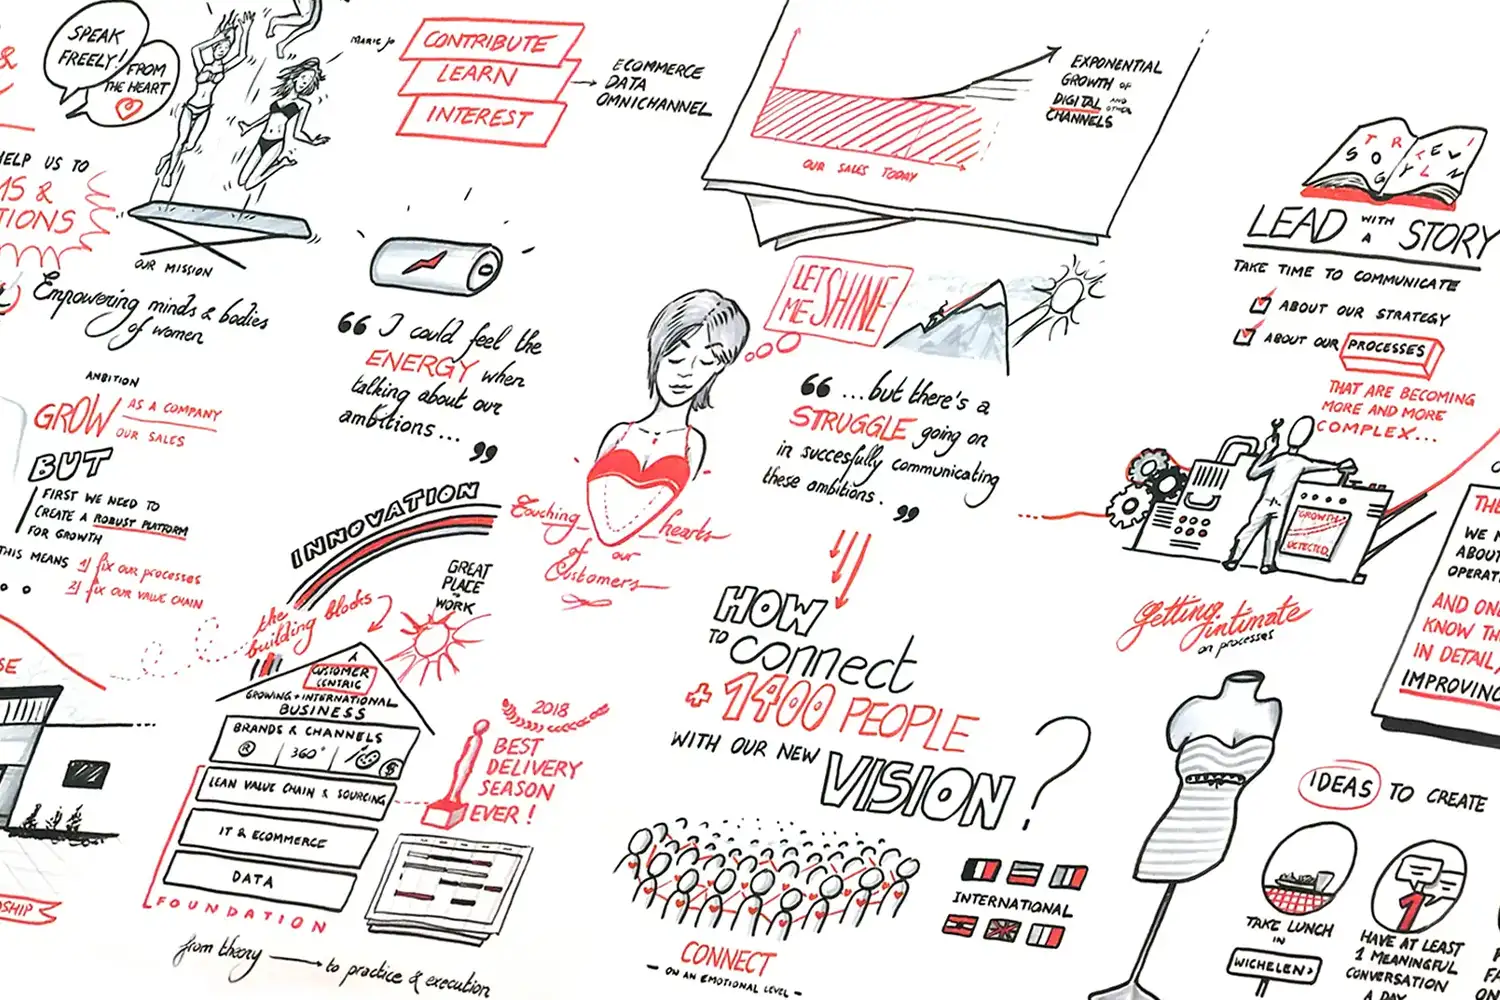 SPEAK
FREELY!
FROM
THE HEART
HELP US TO
&
TIONS
OUR MISSION
Empowering minds & bodies
of women
AMBITION
GROW AS A COMPANY
OUR SALES
BUT
FIRST WE NEED TO
CREATE A ROBUST PLATFORM
FOR GROWTH
THIS MEANS 1) fix our processes
2) fix our value chain
CONTRIBUTE
LEARN
INTEREST
ECOMMERCE
DATA
OMNICHANNEL
“ I could feel the
ENERGY when
talking about our
ambitions... ”
OUR SALES TODAY
EXPONENTIAL
GROWTH OF
DIGITAL AND
OTHER
CHANNELS
LET
ME SHINE
“ ...but there's a
STRUGGLE going on
in succesfully communicating
these ambitions. ”
Touching hearts
of our
Customers
INNOVATION
the
building blocks
GREAT
PLACE
TO
WORK
CUSTOMER
CENTRIC
GROWING + INTERNATIONAL
BUSINESS
BRANDS & CHANNELS
® 360° $
LEAN VALUE CHAIN & SOURCING
IT & ECOMMERCE
DATA
FOUNDATION
from theory → to practice & execution
2018
BEST
DELIVERY
SEASON
EVER!
HOW
TO connect
+ 1400 PEOPLE
WITH OUR NEW VISION ?
CONNECT
- ON AN EMOTIONAL LEVEL -
INTERNATIONAL
STORYTELLING
LEAD WITH A STORY
TAKE TIME TO COMMUNICATE
ABOUT OUR STRATEGY
ABOUT OUR PROCESSES
THAT ARE BECOMING
MORE AND MORE
COMPLEX...
GROWTH
DETECTED
getting intimate
on processes
THE
WE
ABOUT
OPERAT
AND ON
KNOW TH
IN DETAIL,
IMPROVING
IDEAS TO CREATE
TAKE LUNCH
IN
WICHELEN >
1
HAVE AT LEAST
1 MEANINGFUL
CONVERSATION
A DAY